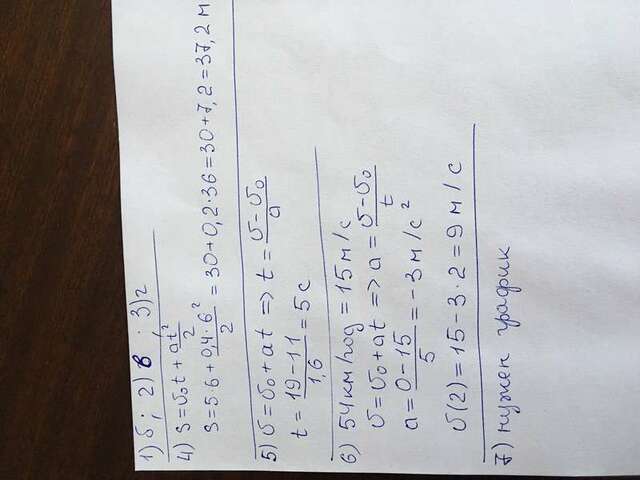 1) б; 2) в ; 3) г
4) S = υ₀t + at²/2
S = 5·6 + 0,4·6²/2 = 30 + 0,2·36 = 30 + 7,2 = 37,2 м
5) υ = υ₀ + at => t = υ - υ₀/a
t = 19 - 11/1,6 = 5 с
6) 54 км/год = 15 м/с
υ = υ₀ + at => a = υ - υ₀/t
a = 0 - 15/5 = -3 м/с²
υ(2) = 15 - 3·2 = 9 м/с
7) нужен график